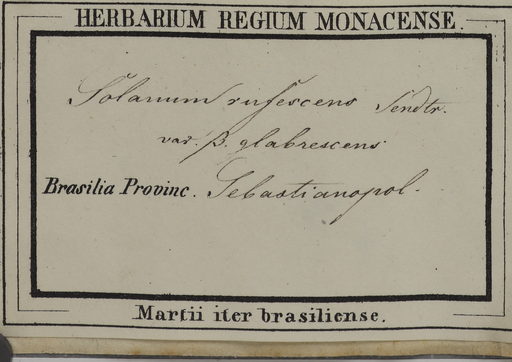 HERBARIUM REGIUM MONACENSE.
Solanum rufescens Sendtr.
var. β. glabrescens
Brasilia Provinc. Sebastianopol.
Martii iter brasiliense.